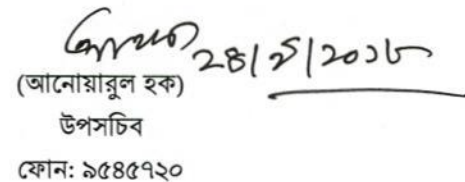 ২৪/৫/২০১৮
(আনোয়ারুল হক)
উপসচিব
ফোন: ৯৫৪৫৭২০